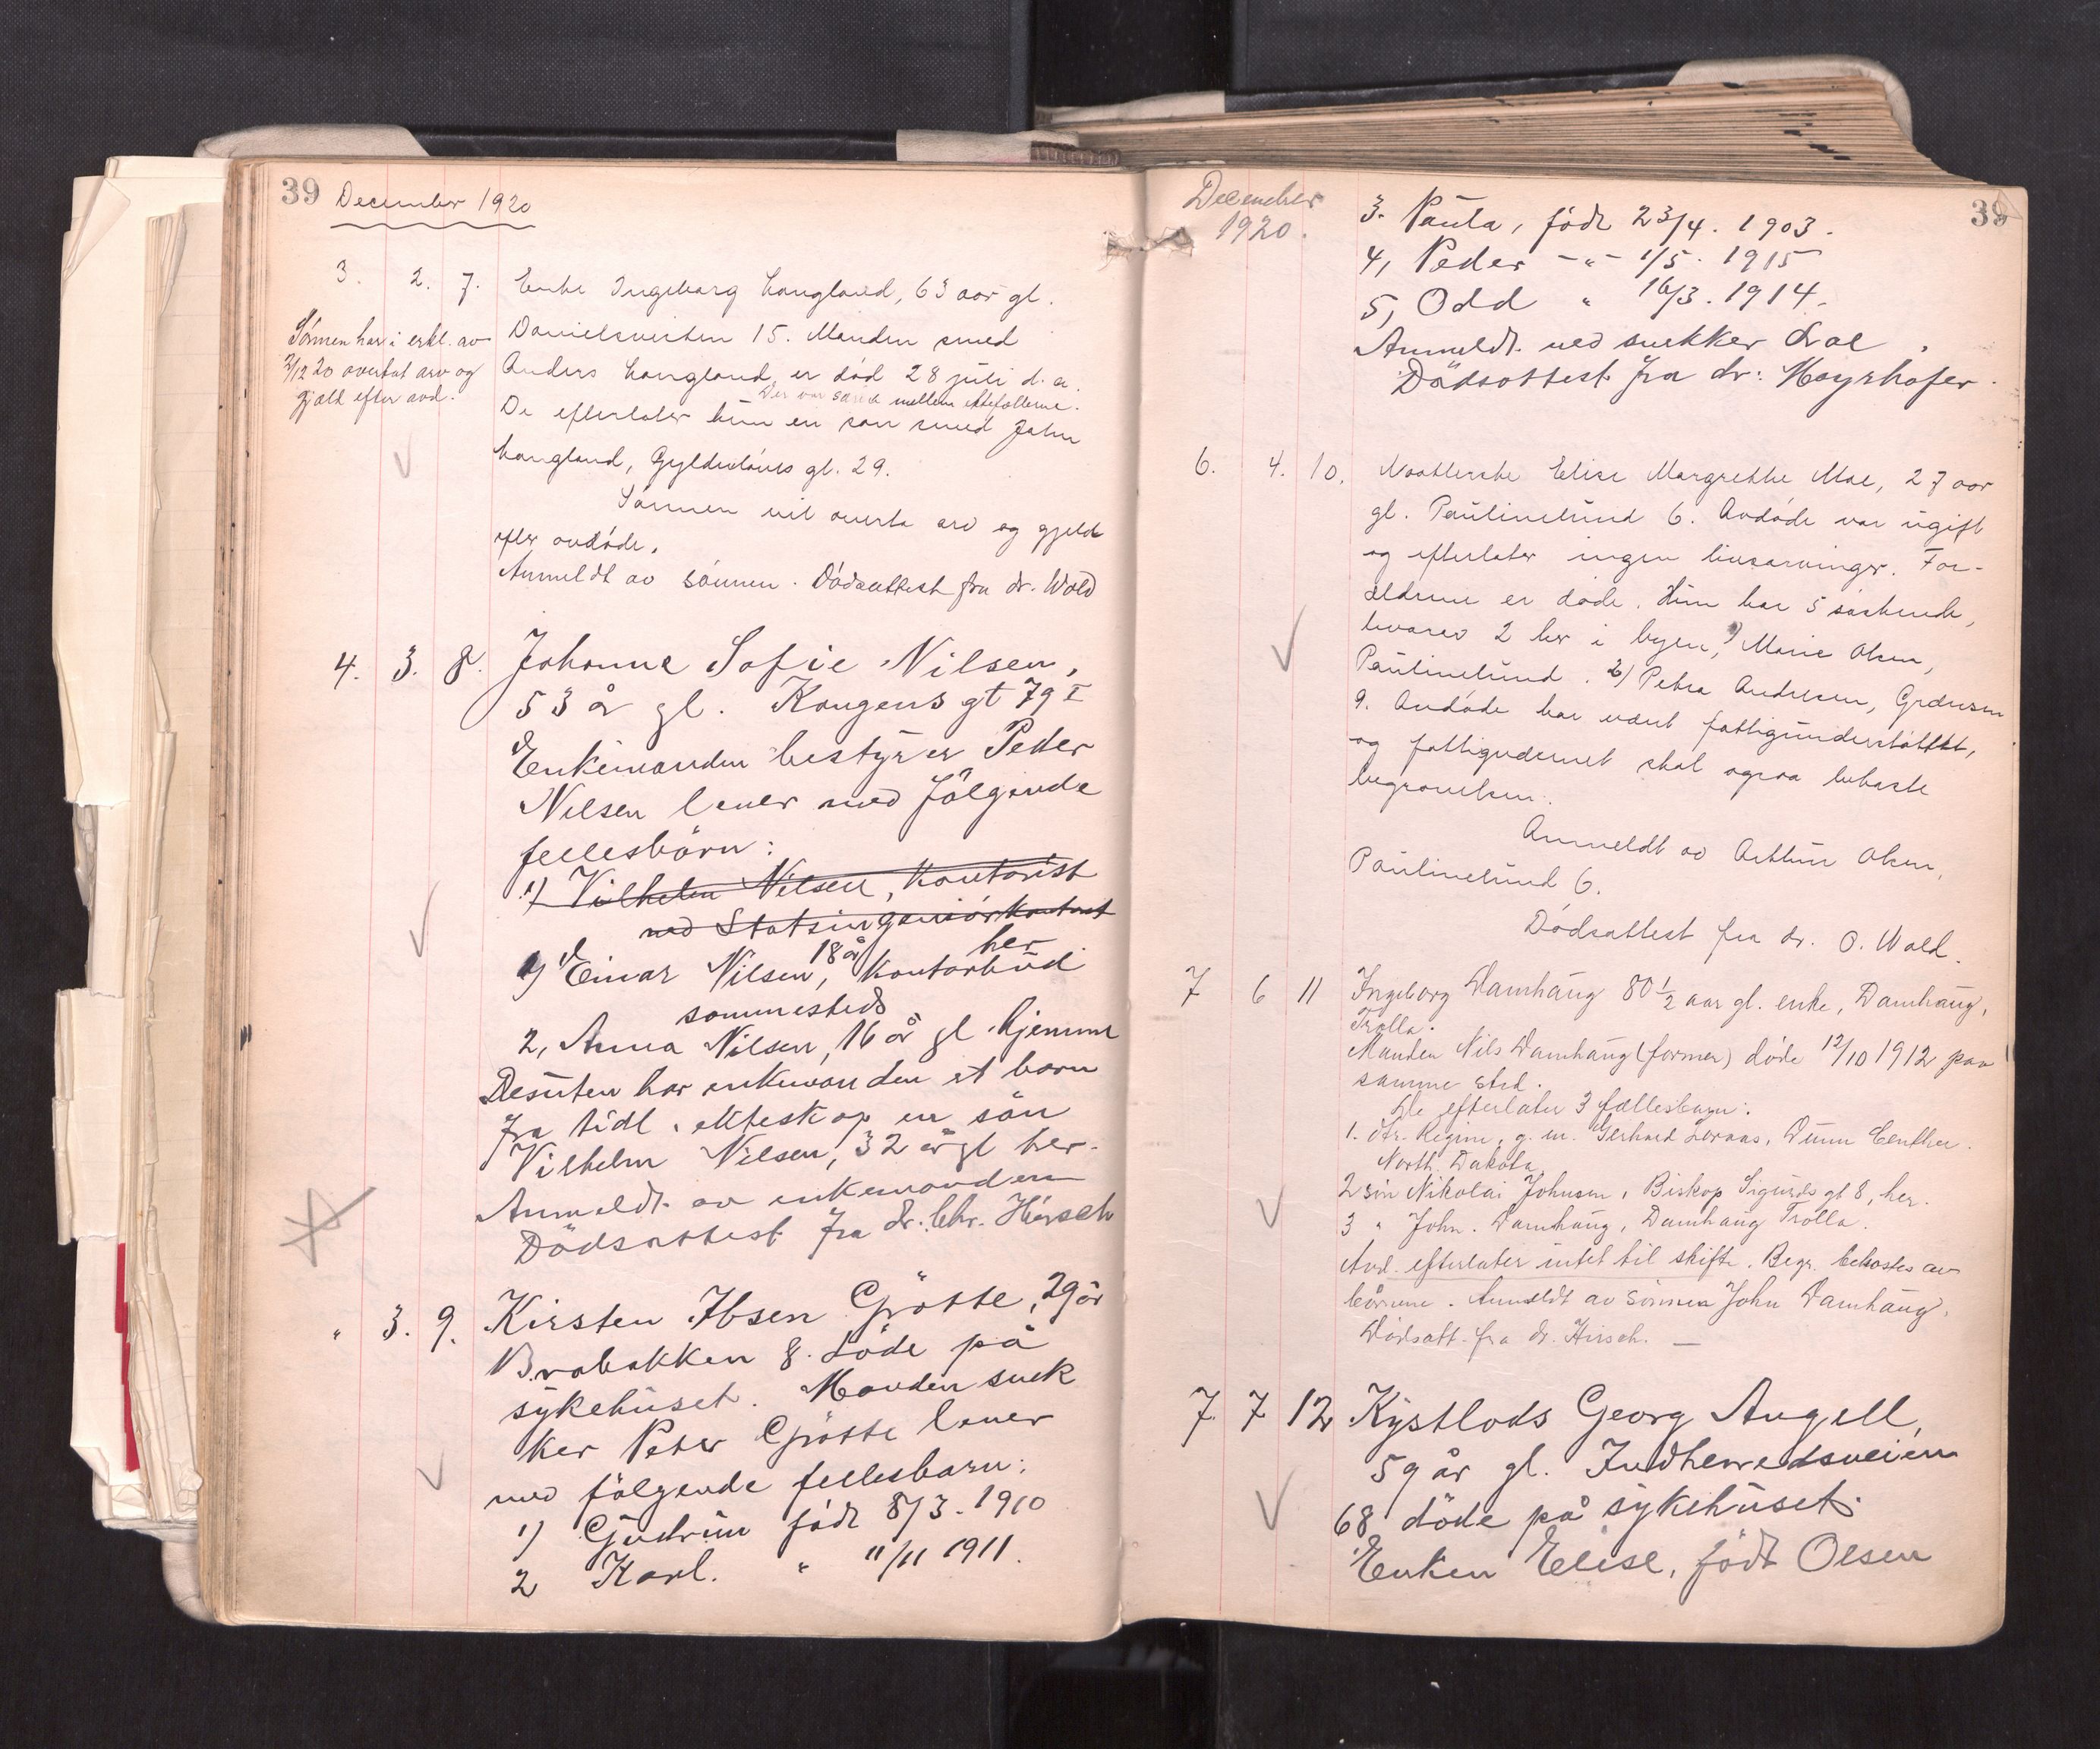 39 December 1920
3. 2. 7. Enke Ingeborg Langland, 63 aar gl.
Danielsveiten 15. Manden smed
Anders Langland, er död 28 juli d.a.
Der var særeie mellem ektefællerne.
De efterlater kun en sön smed John
Langland, Gyldenlöves gt. 29.
Sönnen vil overta arv og gjeld
efter avdöde.
Anmeldt av sönnen. Dödsattest fra dr. Wold
Sönnen har i erkl. av
2/12 20 overtat arv og
gjæld efter avd.
4. 3. 8. Johanna Sofie Nilsen,
53 år gl. Kongens gt 79 I
Enkemanden bestyrer Peder
Nilsen lever med fölgende
fellesbörn:
1) Vilhelm Nilsen, Kontorist
ved Statsingeniörkontoret
1) Einar Nilsen, 18 år, Kontorbud her
sammesteds
2, Anna Nilsen, 16 år gl hjemme
Desuten har enkemanden et barn
fra tidl. ekteskap en sön
Vilhelm Nilsen, 32 år gl her.
Anmeldt av enkemanden
Dödsattest fra dr. Chr. Hirsch
" 3. 9. Kirsten Ibsen Grötte, 29 år
Brobakken 8. döde på
sykehuset. Manden snek
ker Peter Grötte lever
med fölgende fellesbarn:
1) Gudrun födt 8/3. 1910
2 Karl. " 11/11 1911.
December
1920.
39
3. Paula, födt 23/4. 1903.
4, Peder -"- 1/5. 1915
5, Odd " 16/3. 1914.
Anmeldt ved snekker
Dödsattest fra dr: Mayrhofer.
6. 4. 10. Elise Margrethe Moe, 27 aar
gl. Paulinelund 6. Avdöde var ugift
og efterlater ingen livsarvinger. For-
ældrene er döde. Hun har 5 söskende,
hvorav 2 her i byen, 1) Marie Olsen,
Paulinelund. 2) Petra Andresen,
9. Avdöde har været fattigunderstöttet,
og fattigvæsenet skal ogsaa bekoste
begravelsen.
Anmeldt av Arthur Olsen,
Paulinelund 6.
Dödsattest fra dr. O. Wold.
7 6 11 Ingeborg Damhaug 80 1/2 aar gl. enke, Damhaug,
Trolla.
Manden Nils Damhaug (former) döde 12/10 1912 paa
samme sted.
De efterlater 3 fællesbarn:
1. dtr. Regine, g. m. Gerhard Loraas, Dunn Center
North Dakota.
2 sön Nikolai Johnsen, Biskop Sigurds gt 8, her.
3 " John Damhaug, Damhaug Trolla.
Avd. efterlater intet til skifte. Begr. bekostes av
börnene. Anmeldt av sönnen John Damhaug.
Dödsatt. fra dr. Hirsch. —
7. 7 12 Kystlods Georg Angell,
59 år gl. Indherredsveien
68 döde på sykehuset.
Enken Elise, födt Olsen